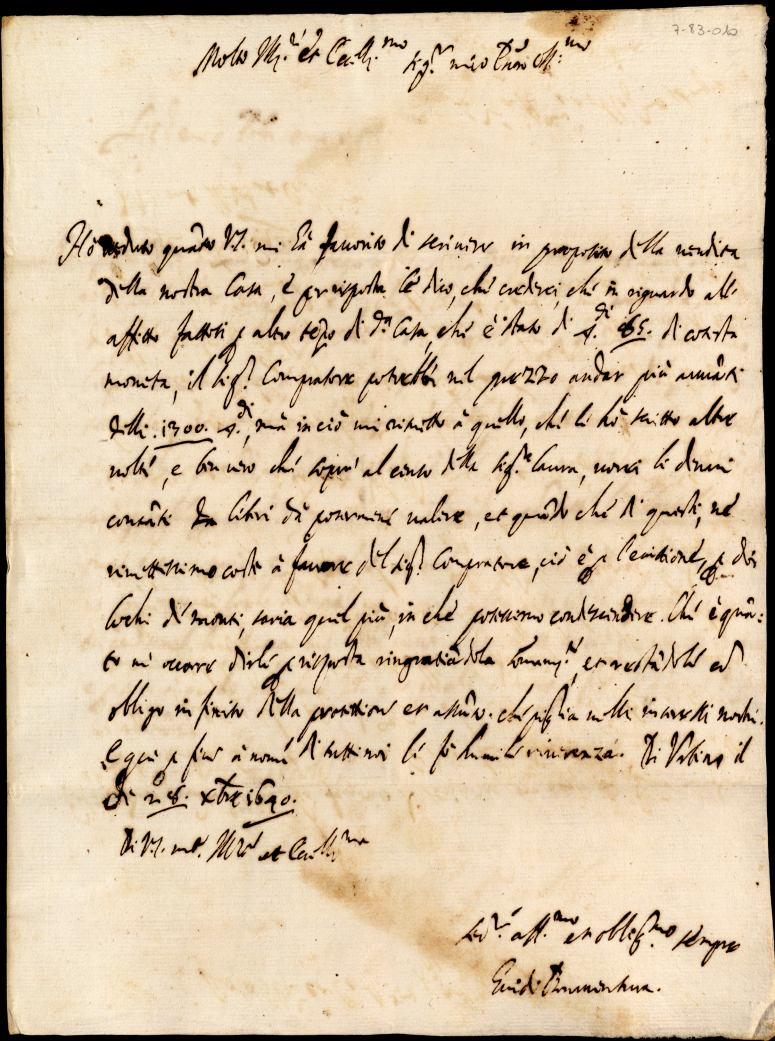 7-83-010
Molto Ill.re et Ecc.mo Sig.r mio P.rone Oss.mo
Hò veduto quãto V.S. mi hà favorito di scrivere in proposito della vendita
della nostra Casa, e per risposta le dico, che crederei, che in riguardo all'
affitto fattosi p altro tẽpo di d.a Casa, che è stato di s.di 65. di cotesta
moneta, il sig.r Compratore potrebbe nel prezzo andar più avãti
delli 1300. s.di, mà in ciò mi rimetto à quello, che li hò scritto altre
volte, e ben vero che sopra al censo della sig.ra Laura, vorrei li denari
contãti liberi da potermene valere, et quãdo che di questi, ne
rimettessimo costì à favore del sig.r Compratore, ciò è p l'evittione, p
lochi de monti, saria quel più, in che potessimo condescendere. Che è quã-
to mi occorre dirle p risposta ringratiãdola, et restãdole cõ
obligo infinito della protettione et assũto che piglia nelli interessi nostri.
E qui p fine à nome di tutti noi li fò humile riverenza. Di Urbino il
dì 28. Xbre 1690.
Di V.S. m.to Ill.re et Ecc.ma
ser.re aff.mo et oblig.mo sempre
Guido Bonaventura.